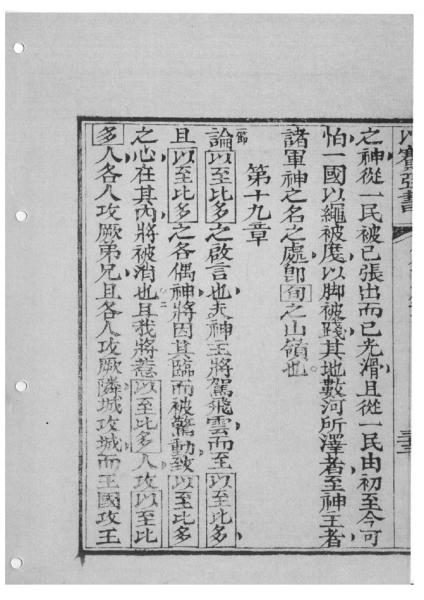 以賽亞書
三十三
之神從一民被已張出而已光滑且從一民由初至今可
怕一國以繩被度以脚被踐其地數河所澤者至神主者
諸軍神之名之處卽旬之山嶺也
第十九章
一節 論以至比多之啟言也夫神主將駕飛雲而至以至比多
且以至比多之各偶神將因其臨而被驚動致以至比多
之心在其內將被消也二且我將惹以至比多人攻以至比
多人各人攻厥弟兄且各人攻厥隣城攻城而王國攻王